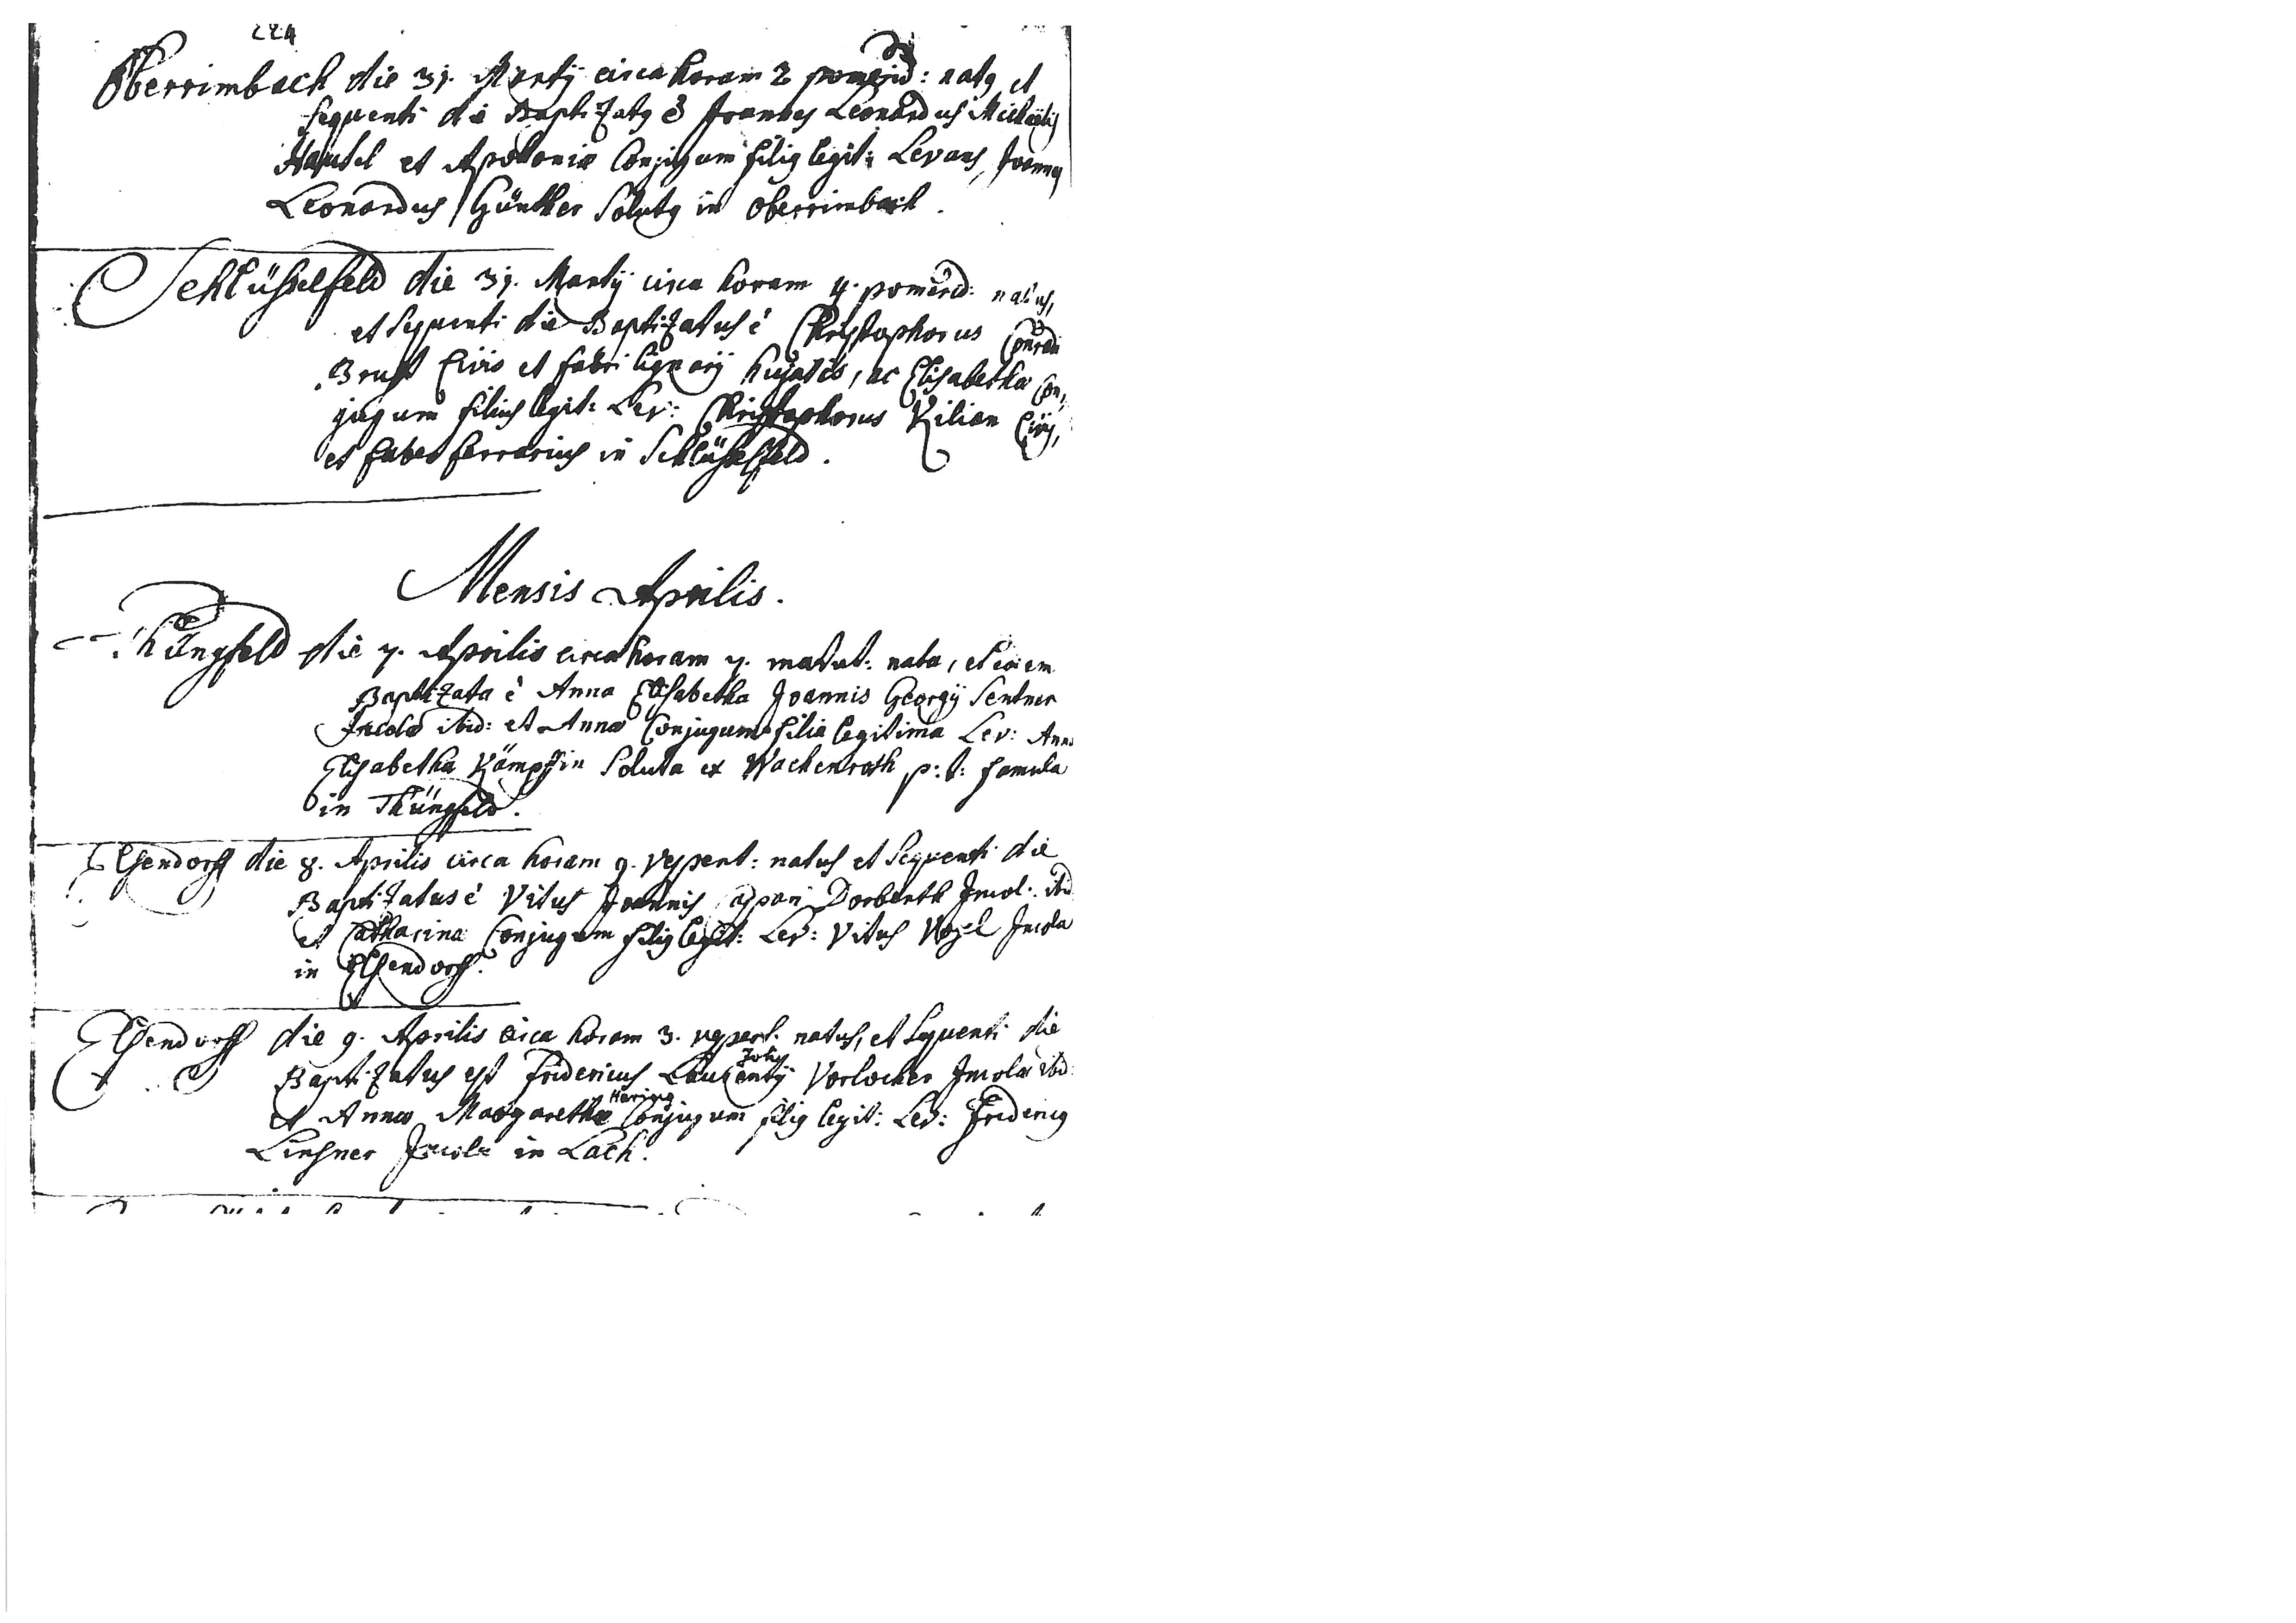 224
Oberrimbach die 31. Martÿ circa horam 2 pomerid: natq et
sequenti die Baptizatq ē Joannes Leonardus Michaelis
et Apoloniæ Conjugum filiq legit: Levans, Joannes
Leonardus Günther Solutq in Oberrimbach.
Schlüsselfeld die 31. Martÿ circa horam 4. pomerid: natus,
et sequenti die Baptizatus ē Christophorus Conradi
Brust Civis et fabri lignarÿ hujatis, ac Elisabetha Con,
jugum filius legit: Lev: Christophorus Kilian Civis,
et faber ferrarius in Schlüsselfeld.
Mensis Aprilis.
Thüngfeld die 7. Aprilis circa horam 7. matut: nata, et eadem
Baptizata ē Anna Elisabetha Joannis Georgÿ Sentner
Incolæ ibid: et Annæ Conjugum filia legitima Lev: Anna
Elisabetha Kämpfin Soluta ex Wachenroth p: t: famula
in Thüngfeld.
Elsendorff die 8. Aprilis circa horam 9. vespert: natus et sequenti die
Baptizatus ē Vitus Joannis Caspari Dorberth Incol: ibid
et Catharina Conjugum filiq legit: Lev: Vitus Vogel Incola
in Elsendorff.
Elsendorff die 9. Aprilis circa horam 3. vespert. natus, et sequenti die
Baptizatus est Fridericus Laurentÿ Vorlocher Incolæ ibid:
et Annæ Margarethæ Hering Conjugum filiq legit: Lev: Fridericq
Lensner Incola in Lach.